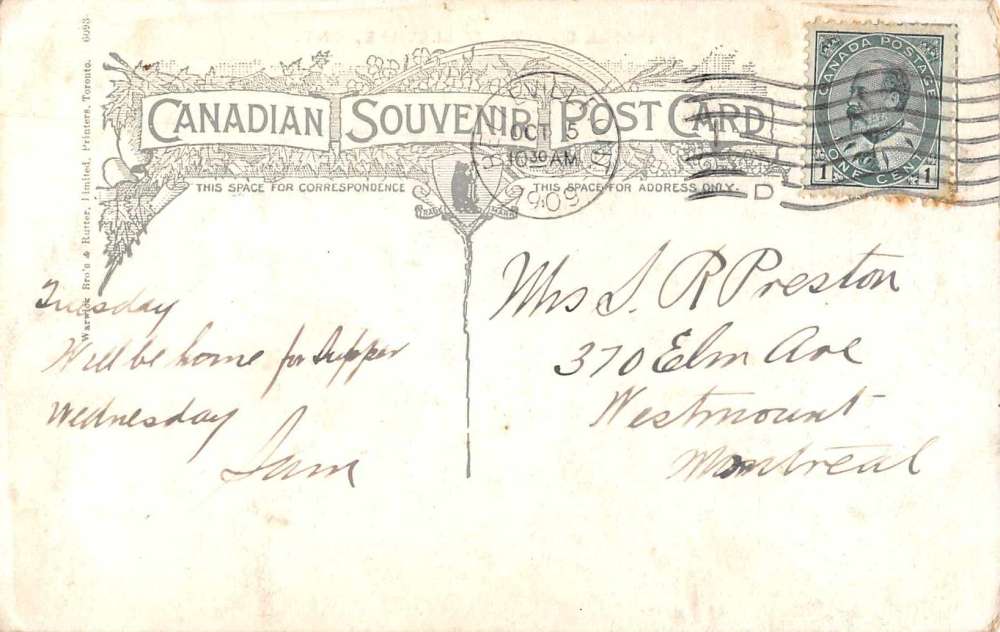 CANADIAN SOUVENIR POST CARD
THIS SPACE FOR CORRESPONDENCE
THIS SPACE FOR ADDRESS ONLY.
TRADE MARK
Warwick Bro's & Rutter, Limited, Printers, Toronto. 6093
BELLEVILLE
OCT 5
10 30 AM
1909
D
CANADA POSTAGE
1 ONE CENT 1
Tuesday
Will be home for Supper
Wednesday
Sam
Mrs S. R Preston
370 Elm Ave
Westmount
Montreal